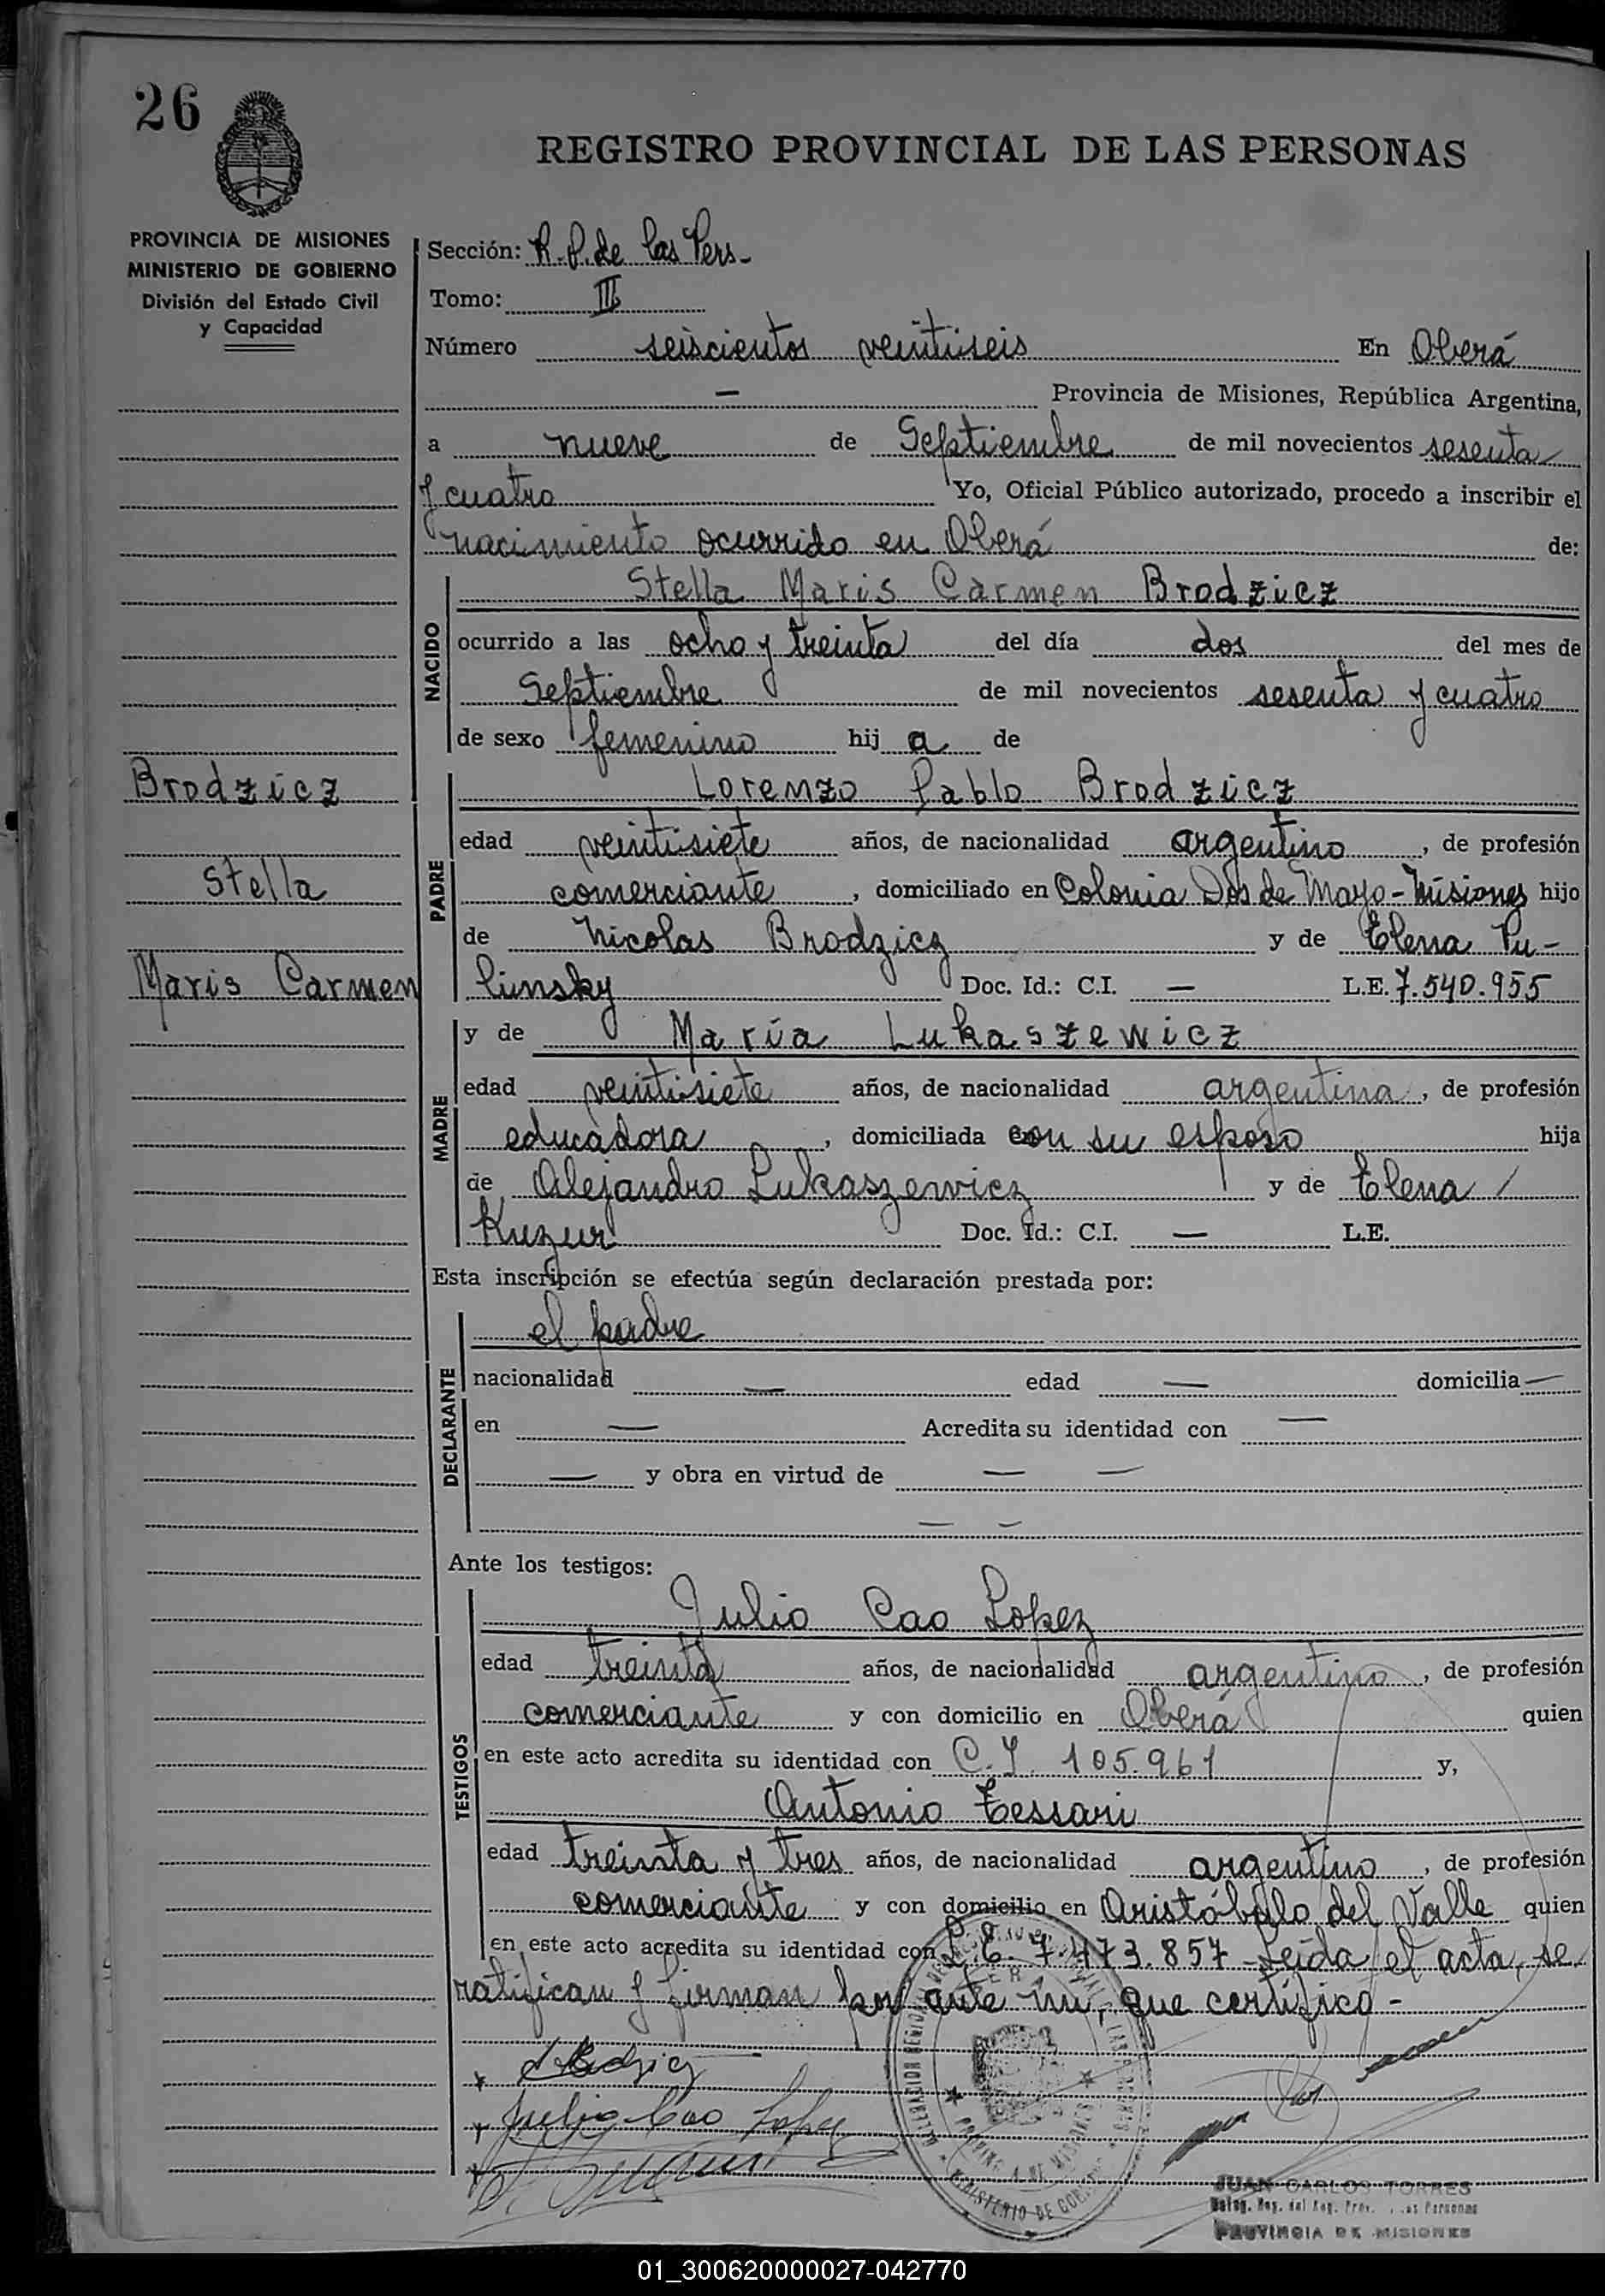 26
REGISTRO PROVINCIAL DE LAS PERSONAS
PROVINCIA DE MISIONES
MINISTERIO DE GOBIERNO
División del Estado Civil
y Capacidad
Sección: R. P. de las Pers-
Tomo: III
Número seiscientos veintiseis En Oberá
— Provincia de Misiones, República Argentina,
a nueve de Septiembre de mil novecientos sesenta
y cuatro Yo, Oficial Público autorizado, procedo a inscribir el
nacimiento ocurrido en Oberá de:
NACIDO
Stella Maris Carmen Brodzicz
ocurrido a las ocho y treinta del día dos del mes de
Septiembre de mil novecientos sesenta y cuatro
de sexo femenino hij a de
Brodzicz
Stella
Maris Carmen
PADRE
Lorenzo Pablo Brodzicz
edad veintisiete años, de nacionalidad argentino, de profesión
comerciante, domiciliado en Colonia Dos de Mayo-Misiones hijo
de Nicolas Brodzicz y de Elena Pu-
linsky Doc. Id.: C.I. — L.E. 7.540.955
MADRE
y de María Lukaszewicz
edad veintisiete años, de nacionalidad argentina, de profesión
educadora, domiciliada con su esposo hija
de Alejandro Lukaszewicz y de Elena /
Kuzur Doc. Id.: C.I. — L.E.
Esta inscripción se efectúa según declaración prestada por:
DECLARANTE
el padre
nacionalidad — edad — domicilia —
en — Acredita su identidad con —
— y obra en virtud de — —
— —
Ante los testigos:
TESTIGOS
Julio Cao Lopez
edad treinta años, de nacionalidad argentino, de profesión
comerciante y con domicilio en Oberá quien
en este acto acredita su identidad con C.I. 105.961 y,
Antonio Tessari
edad treinta y tres años, de nacionalidad argentino, de profesión
comerciante y con domicilio en Aristóbulo del Valle quien
en este acto acredita su identidad con L.E. 7.473.857 - Leída el acta, se
ratifican y firman por ante mí, que certifico -
Julio Cao Lopez
MINISTERIO DE GOB
PROVINCIA DE MISIONES
JUAN CARLOS TORRES
PROVINCIA DE MISIONES
01_300620000027-042770